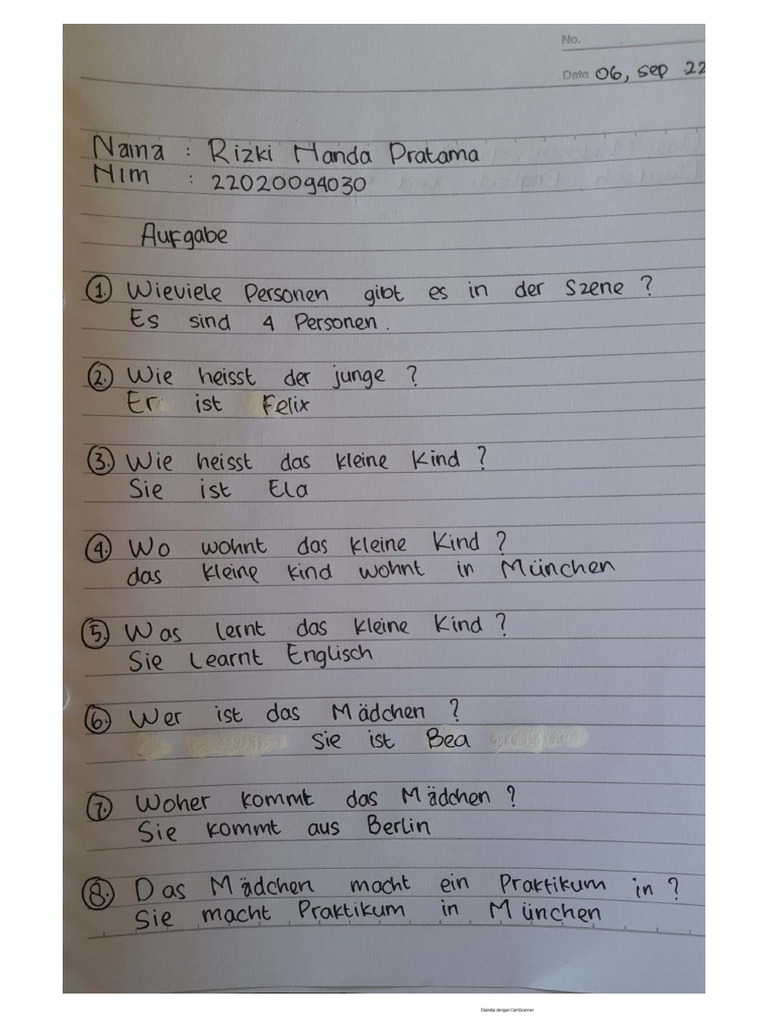 No.
Date 06, sep 22
Nama : Rizki Handa Pratama
NIM : 22020094030
Aufgabe
1. Wieviele Personen gibt es in der Szene ?
Es sind 4 Personen.
2. Wie heisst der junge ?
Er ist Felix
3. Wie heisst das kleine Kind ?
Sie ist Ela
4. Wo wohnt das kleine Kind ?
das kleine kind wohnt in München
5. Was lernt das kleine Kind ?
Sie Learnt Englisch
6. Wer ist das Mädchen ?
Sie ist Bea
7. Woher kommt das Mädchen ?
Sie kommt aus Berlin
8. Das Mädchen macht ein Praktikum in ?
Sie macht Praktikum in München
Dipindai dengan CamScanner